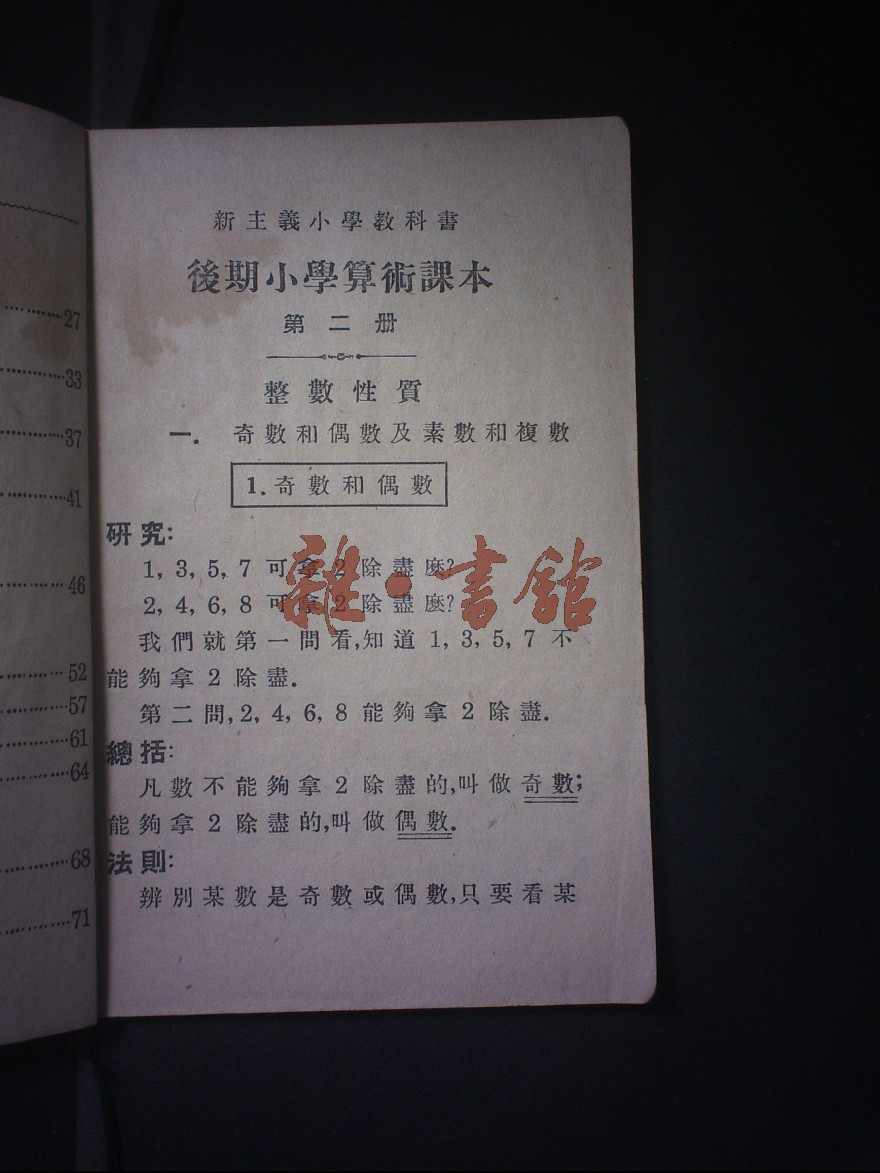 27
33
37
41
46
52
57
61
64
68
71
新主義小學教科書
後期小學算術課本
第二册
整數性質
一. 奇數和偶數及素數和複數
1. 奇數和偶數
研究:
1, 3, 5, 7 可拿 2 除盡麽?
2, 4, 6, 8 可拿 2 除盡麽?
我們就第一問看,知道 1, 3, 5, 7 不
能夠拿 2 除盡.
第二問, 2, 4, 6, 8 能夠拿 2 除盡.
總括:
凡數不能夠拿 2 除盡的,叫做奇數;
能夠拿 2 除盡的,叫做偶數.
法則:
辨別某數是奇數或偶數,只要看某
雜·書館